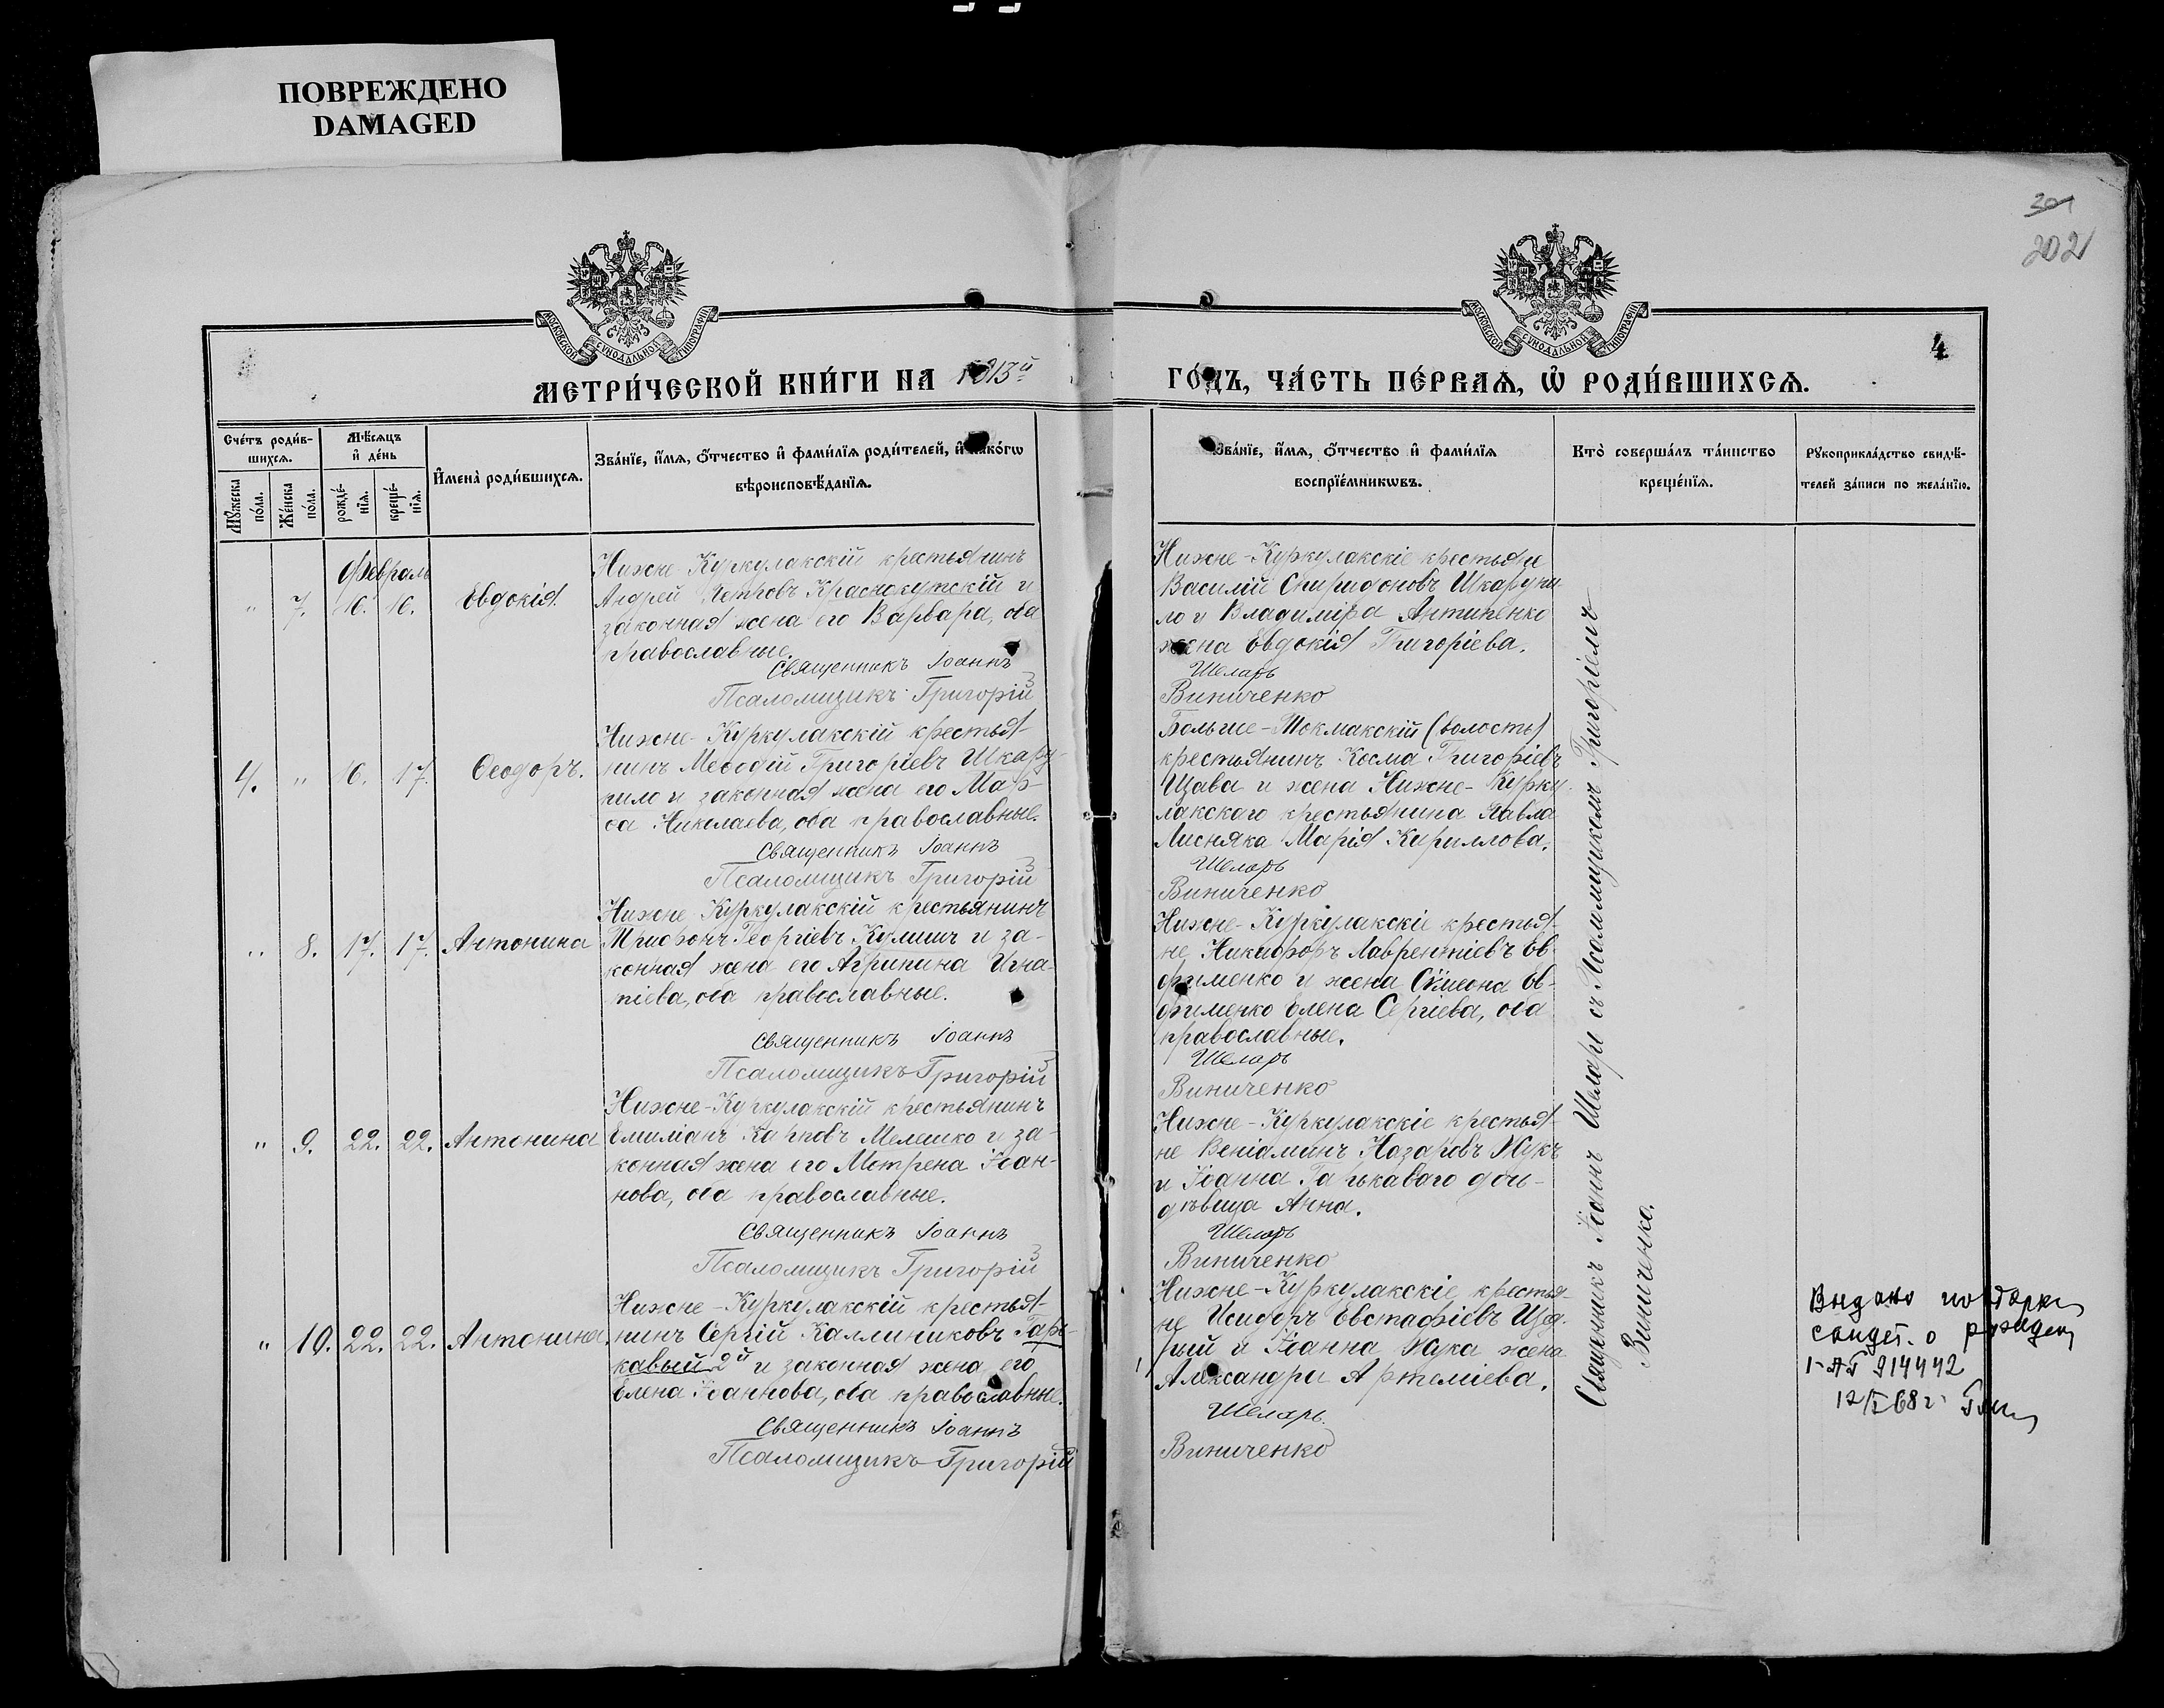 ПОВРЕЖДЕНО
DAMAGED
301
202
МОСКОВСКОЙ СУНОДАЛЬНОЙ ТИПОГРАФІИ
МОСКОВСКОЙ СУНОДАЛЬНОЙ ТИПОГРАФІИ
4
МЕТРИ́ЧЕСКОЙ КНИ́ГИ НА 1913й
ГО́ДЪ, ЧА́СТЬ ПЕ́РВАѦ, Ѡ҆ РОДИ́ВШИХСѦ.
Сче́тъ роди́в-
шихсѧ.
Мѣ́сѧцъ
и҆ де́нь
И҆мена̀ роди́вшихсѧ.
Зва́нїе, и҆́мѧ, ѻ҆́тчество и҆ фами́лїѧ роди́телей, и҆ како́гѡ
вѣроисповѣ́данїѧ.
Мꙋ́жеска
по́ла.
Же́нска
по́ла.
рожде́-
нїѧ.
креще́-
нїѧ.
Зва́нїе, и҆́мѧ, ѻ҆́тчество и҆ фами́лїѧ
воспрїе́мникѡвъ.
Кто̀ соверша́лъ та́инство
креще́нїѧ.
Рꙋкоприкла́дство свидѣ́-
телей за́писи по жела́нїю.
Февраль
" 7. 16. 16. Евдокія.
Нижне-Куркулакскій крестьянинъ
Андрей Петровъ Краснокутскій и
законная жена его Варвара, оба
православные.
Священникъ Іоаннъ
Псаломщикъ Григорій
Нижне-Куркулакскіе крестьяне
Василій Спиридоновъ Шкарупи
ло и Владиміра Антипенко
жена Евдокія Григоріева.
Шеларь
Виниченко
4. " 16. 17. Ѳеодоръ.
Нижне-Куркулакскій крестья-
нинъ Меѳодій Григоріевъ Шкару-
пило и законная жена его Мар-
ѳа Николаева, оба православные.
Священникъ Іоаннъ
Псаломщикъ Григорій
Больше-Токмакскій (волости)
крестьянинъ Косма Григоріевъ
Щава и жена Нижне-Курку-
лакского крестьянина Павла
Лисняка Марія Кириллова.
Шеларь
Виниченко
" 8. 17. 17. Антонина
Нижне Куркулакскій крестьянинъ
Трифонъ Георгіевъ Кулишъ и за-
конная жена его Агрипина Игна-
тіева, оба православные.
Священникъ Іоаннъ
Псаломщикъ Григорій
Нижне-Куркулакскіе крестья-
не Никифоръ Лаврентіевъ Ев-
фименко и жена Сѵмеона Ев-
фименко Елена Сергіева, оба
православные.
Шеларь
Виниченко
" 9. 22. 22. Антонина
Нижне-Куркулакскій крестьянинъ
Емиліанъ Карповъ Мелешко и за-
конная жена его Мотрена Іоан-
нова, оба православные.
Священникъ Іоаннъ
Псаломщикъ Григорій
Нижне-Куркулакскіе крестья-
не Веніаминъ Назаровъ Жукъ
и Іоанна Гарькаваго дочь-
дѣвица Анна.
Шеларь
Виниченко
" 10. 22. 22. Антонина.
Нижне-Куркулакскій крестья-
нинъ Сергій Каллиниковъ Гарь-
кавый 2й и законная жена его
Елена Іоаннова, оба православные.
Священникъ Іоаннъ
Псаломщикъ Григорій
Нижне-Куркулакскіе крестья-
не Исидоръ Евстафіевъ
и Іоанна Жука жена
Александра Артеміева.
Шеларь.
Виниченко
Священникъ Іоаннъ Шеларь съ Псаломщикомъ Григоріемъ
Виниченко.
Выдано повторн
свидет. о рожден
914442
12/I 68 г.